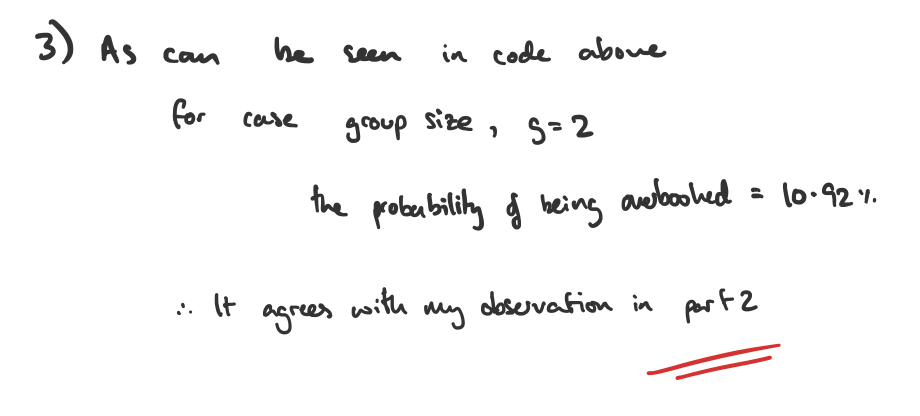 3) As can be seen in code above
for case group size, S=2
the probability of being overbooked = 10.92%.
∴ It agrees with my observation in part 2